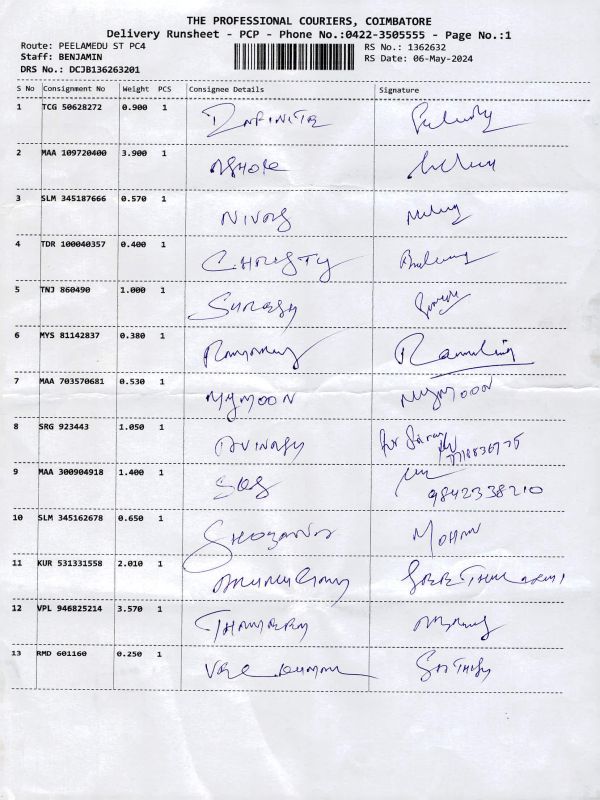 THE PROFESSIONAL COURIERS, COIMBATORE
Delivery Runsheet - PCP - Phone No.:0422-3505555 - Page No.:1
Route: PEELAMEDU ST PC4 RS No.: 1362632
Staff: BENJAMIN RS Date: 06-May-2024
DRS No.: DCJB136263201
S No Consignment No Weight PCS Consignee Details Signature
1 TCG 50628272 0.900 1 INFINITE
2 MAA 109720400 3.900 1 ASHOK
3 SLM 345187666 0.570 1 NIVAS
4 TDR 100040357 0.400 1 CHRISTY
5 TNJ 860490 1.000 1 SURESH
6 MYS 81142837 0.380 1
7 MAA 703570681 0.530 1 MYMOON MYMOON
8 SRG 923443 1.050 1 AVINASH
9 MAA 300904918 1.400 1 9842338210
10 SLM 345162678 0.650 1 MOHAN
11 KUR 531331558 2.010 1
12 VPL 946825214 3.570 1
13 RMD 601160 0.250 1